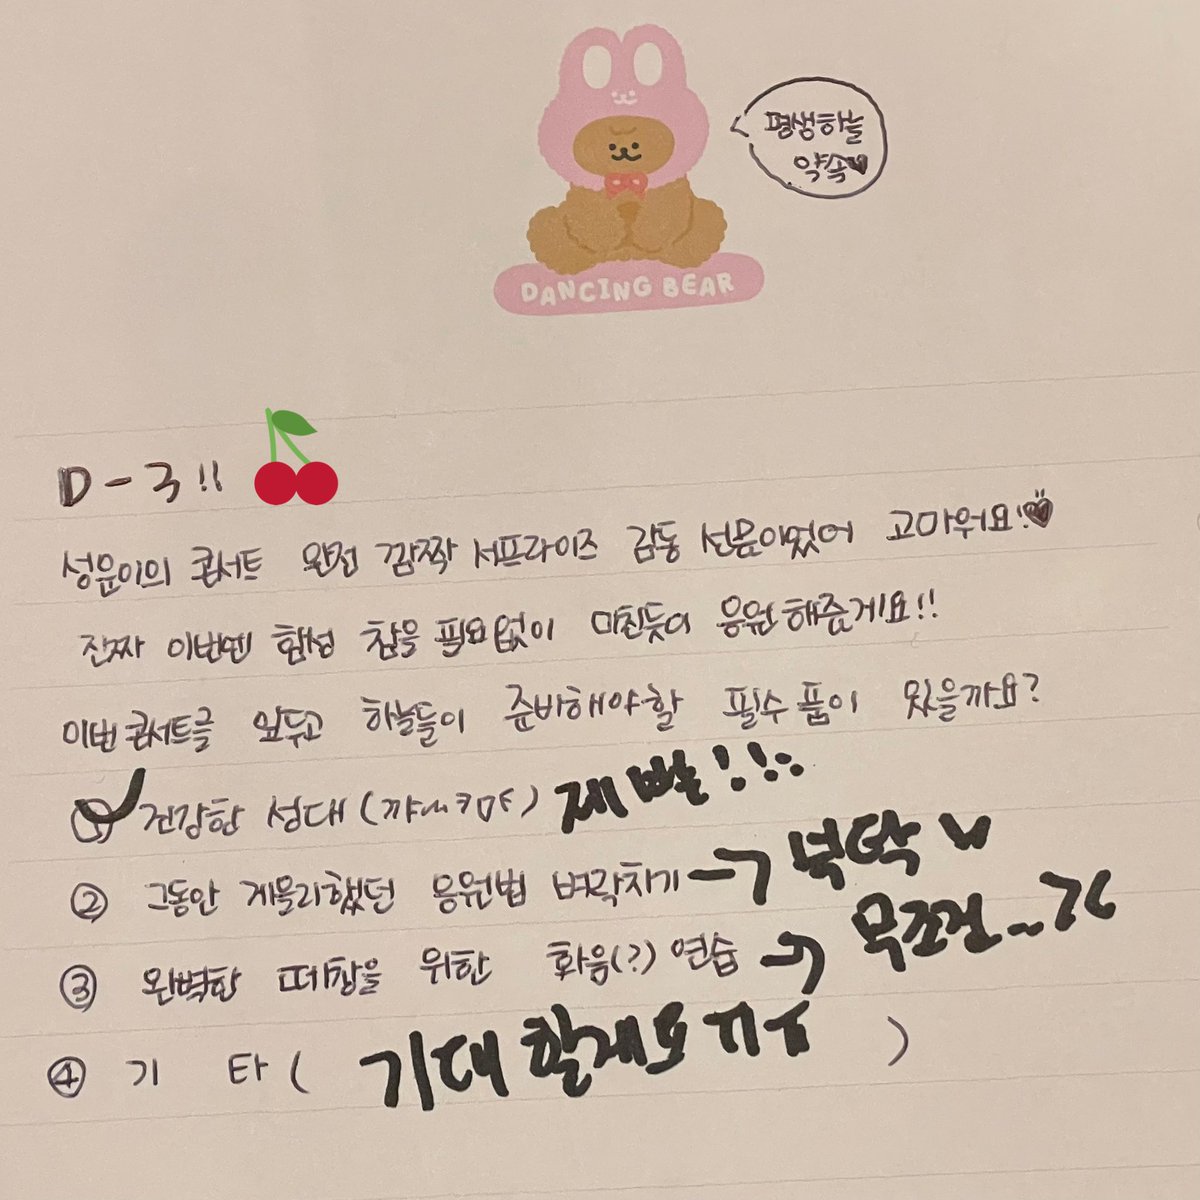 평생하늘
약속♥
DANCING BEAR
D-3!!
성운이의 콘서트 완전 깜짝 서프라이즈 감동 선물이었어 고마워요!♥
진짜 이번엔 함성 참을 필요없이 미친듯이 응원해줄게요!!
이번 콘서트를 앞두고 하늘들이 준비해야할 필수품이 있을까요?
① 건강한 성대 (꺄~ㅋㅑ) 제발!!!
② 그동안 게을리했던 응원법 벼락치기 → 뚝딱
③ 완벽한 떼창을 위한 화음(?) 연습 → 무조건..ㅋ
④ 기 타 ( 기대할게요 ㅠㅠ )